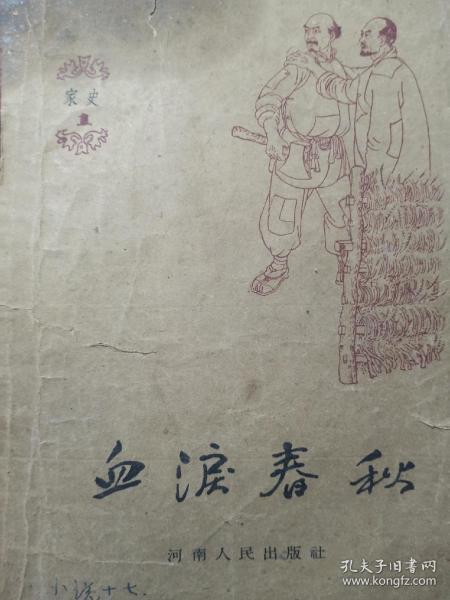 家史
血淚春秋
河南人民出版社
小说十七.
孔夫子旧书网
www.kongfz.com